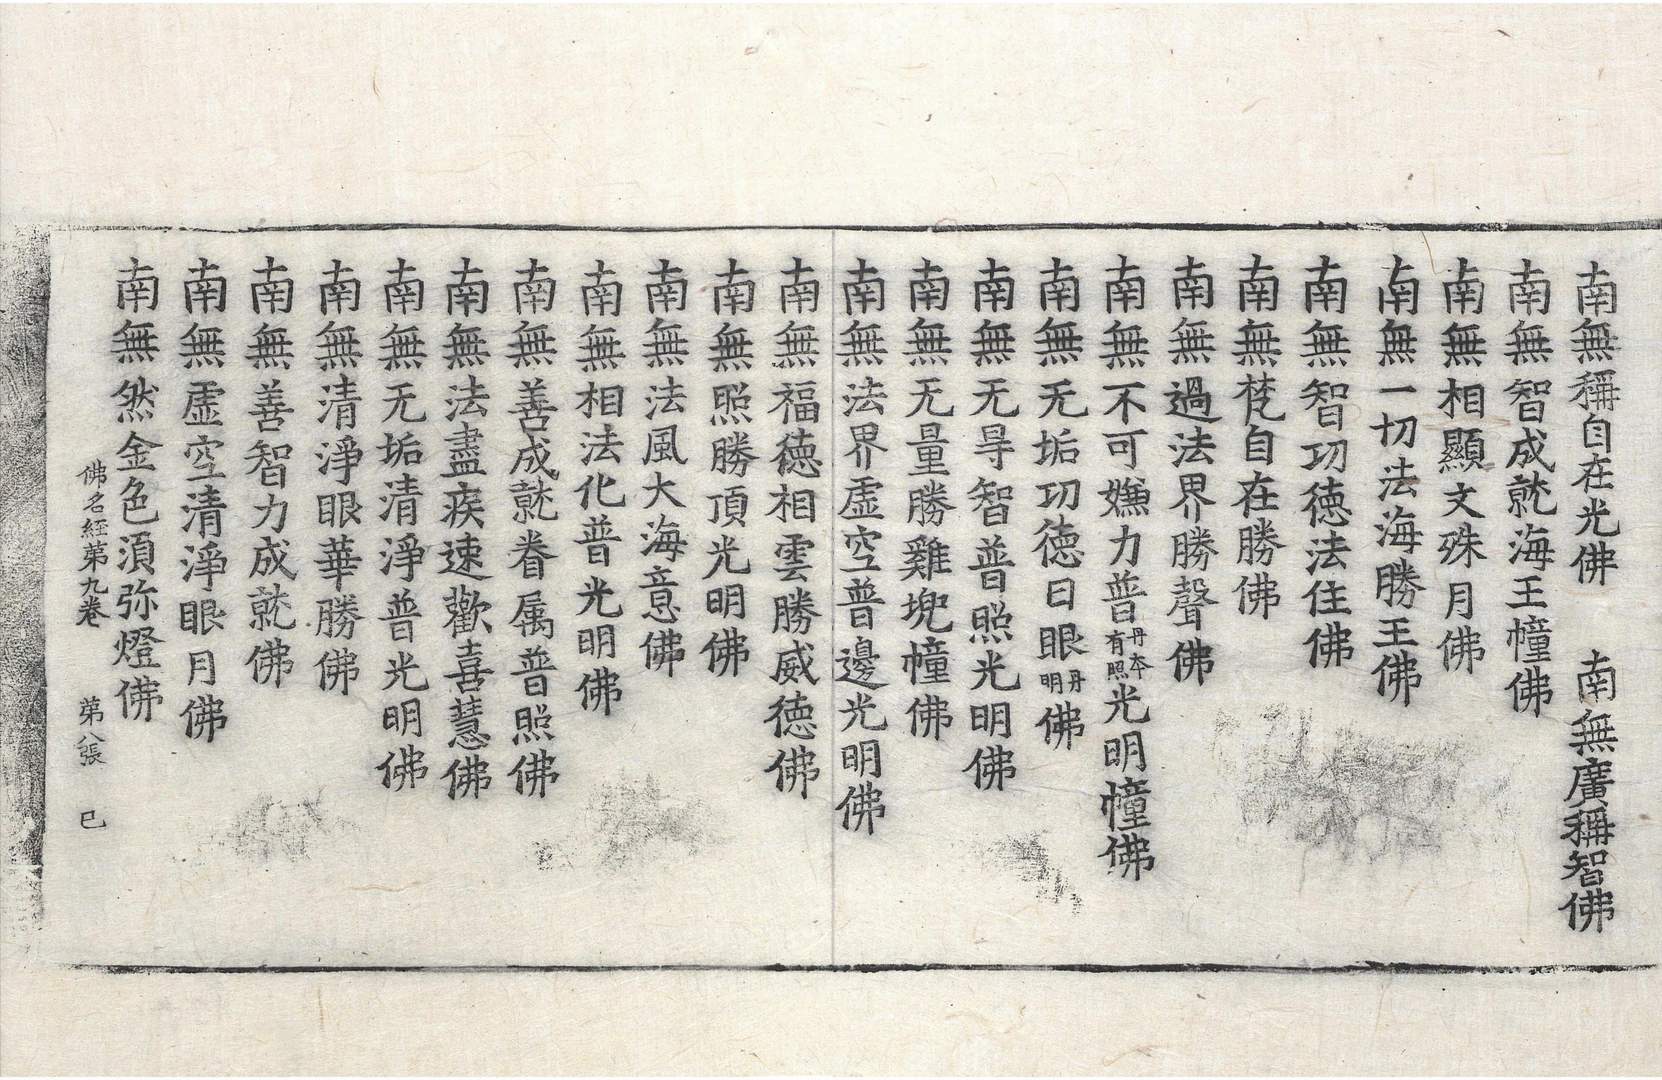 南無稱自在光佛　南無廣稱智佛
南無智成就海王幢佛
南無相顯文殊月佛
南無一切法海勝王佛
南無智功德法住佛
南無梵自在勝佛
南無過法界勝聲佛
南無不可嫌力普丹本有照光明幢佛
南無无垢功德日眼丹明佛
南無无㝵智普照光明佛
南無无量勝雞兜幢佛
南無法界虛空普邊光明佛
南無福德相雲勝威德佛
南無照勝頂光明佛
南無法風大海意佛
南無相法化普光明佛
南無善成就眷属普照佛
南無法盡疾速歡喜慧佛
南無无垢清淨普光明佛
南無清淨眼華勝佛
南無善智力成就佛
南無虛空清淨眼月佛
南無然金色湏弥燈佛
佛名經第九卷　第八張　巳